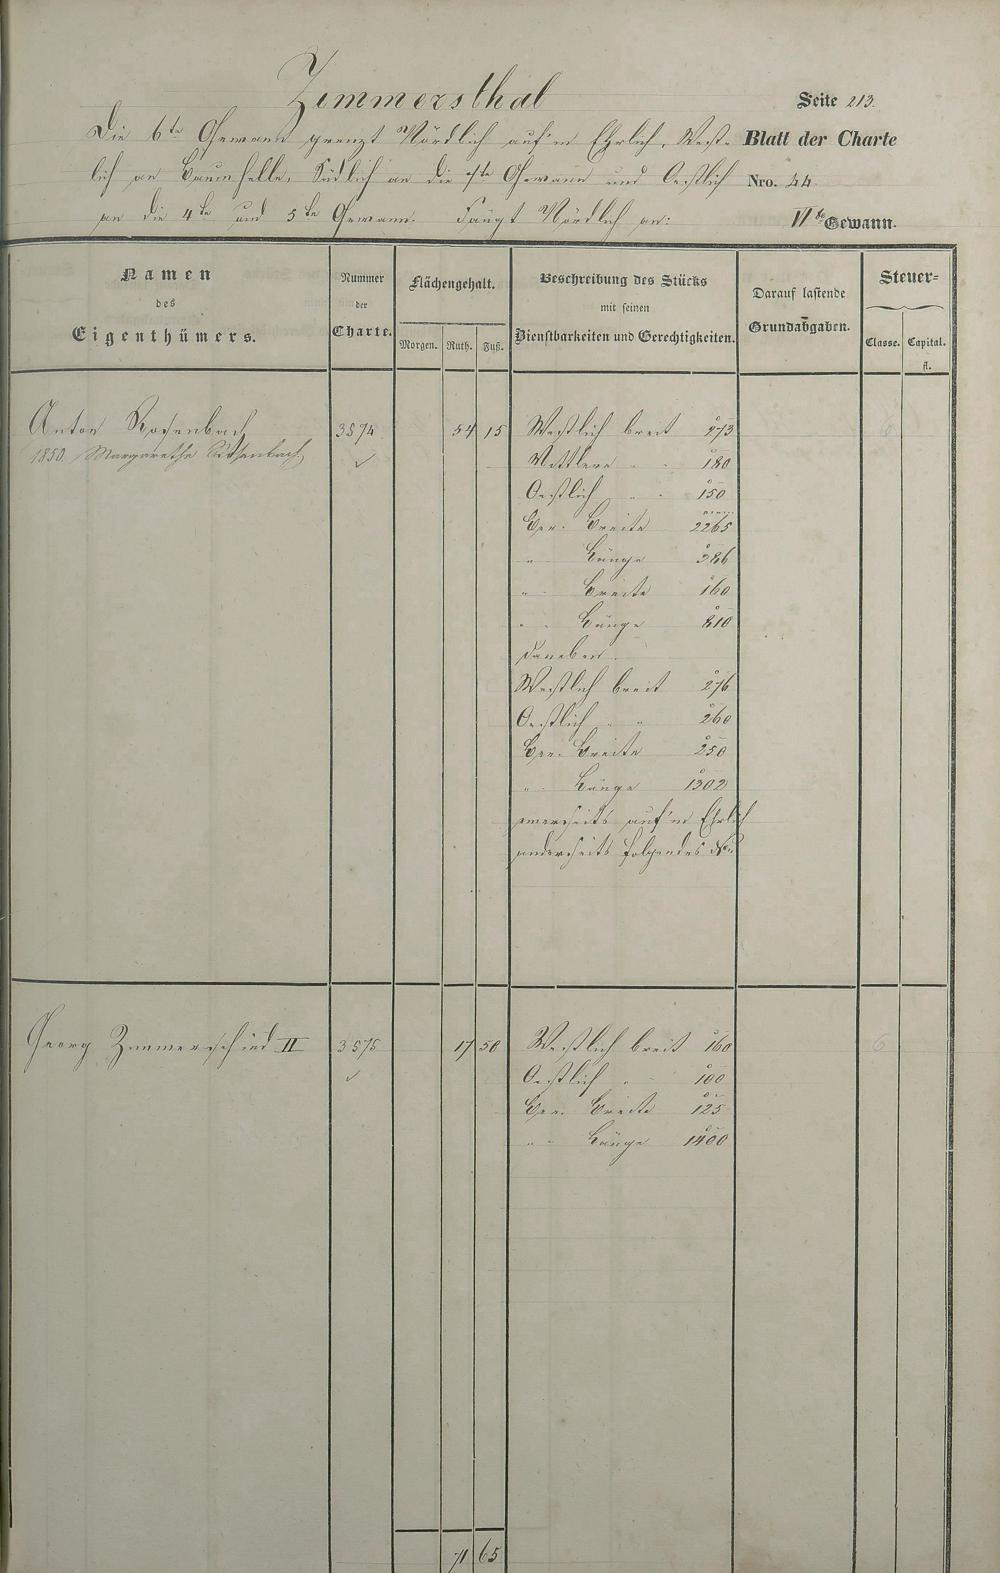 Zimmersthal
Seite 213.
Die 6te Gewann grenzt Nördlich auf'm Ehrlich, West-
Blatt der Charte
lich an Baumhelle, Südlich an die 1ste Gewann und Oestlich
Nro. 44.
an die 4te und 5te Gewann. Fängt Nördlich an:
VIte Gewann.
Namen
des
Eigenthümers.
Nummer
der
Charte.
Flächengehalt.
Morgen. Ruth. Fuß.
Beschreibung des Stücks
mit seinen
Dienstbarkeiten und Gerechtigkeiten.
Darauf lastende
Grundabgaben.
Steuer-
Classe. Capital.
fl.
Anton Rosenbach 3574 54 15 Westlich breit 273 6
1850. Margarethe Rosenbach
Mittlere " " 180
Oestlich " " 150
Ger. Breite 2265
" Länge 386
" Breite 160
" Länge 810
daneben.
Westlich breit 276
Oestlich " " 260
Ger. Breite 250
" Länge 1302
einerseits auf'm Ehrlich
anderseits folgendes
Georg Zimmerschied II 3575 17 50 Westlich breit 160 6
Oestlich " " 100
Ger. Breite 125
" Länge 1400
71 65